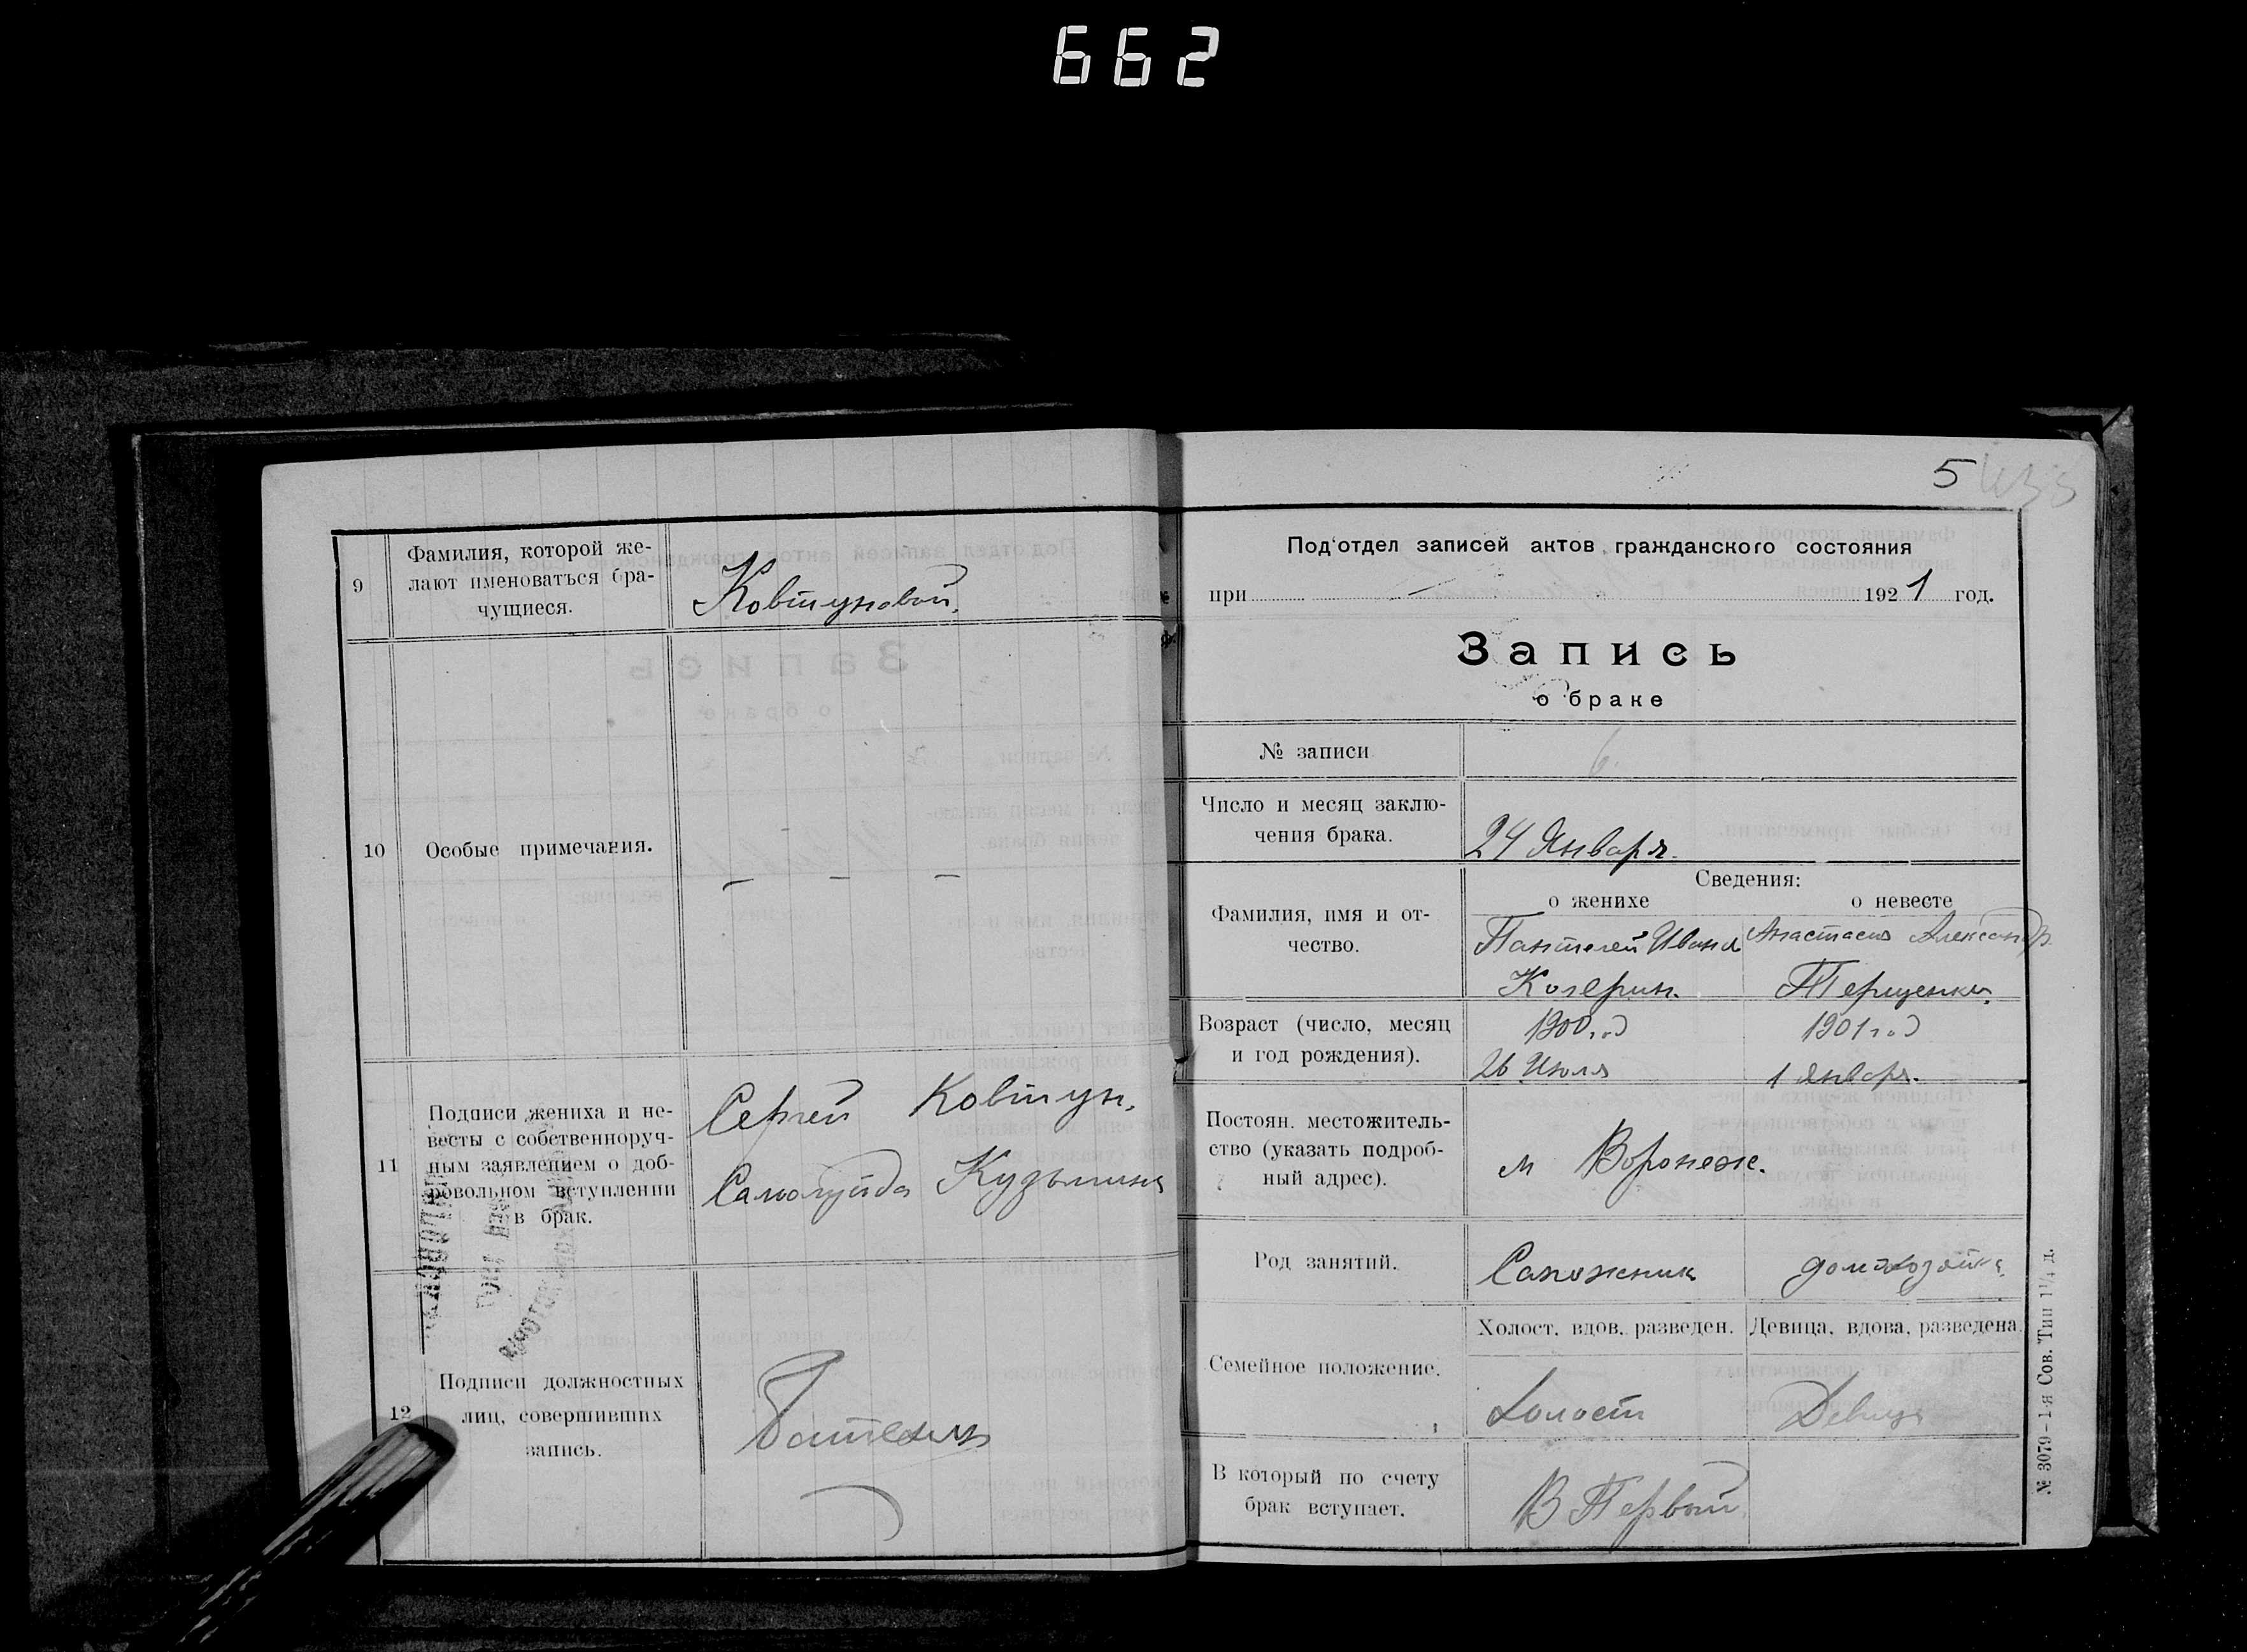 662
9
Фамилия, которой же-
лают именоваться бра-
чущиеся.
Ковтуновой.
10
Особые примечания.
— — —
11
Подписи жениха и не-
весты с собственноруч-
ным заявлением о доб-
ровольном вступлении
в брак.
Сергей Ковтун.
Кузьмина
12
Подписи должностных
лиц, совершивших
запись.
5
Под'отдел записей актов гражданского состояния
при — 1921 год.
Запись
о браке
№ записи
6.
Число и месяц заклю-
чения брака.
24 Января.
Сведения:
о женихе
о невесте
Фамилия, имя и от-
чество.
Пантелей Иванов
Козерин.
Анастасия Александр.
Терещенко.
Возраст (число, месяц
и год рождения).
1900 год
26 Июля
1901 год
1 Января.
Постоян. местожитель-
ство (указать подроб-
ный адрес).
м Воронеж.
Род занятий.
Сапожник
домохозяйка.
Семейное положение.
Холост, вдов., разведен.
Девица, вдова, разведена.
Холост
Девица
В который по счету
брак вступает.
В Первый.
№ 3079 – 1-я Сов. Тип 1¼ д.